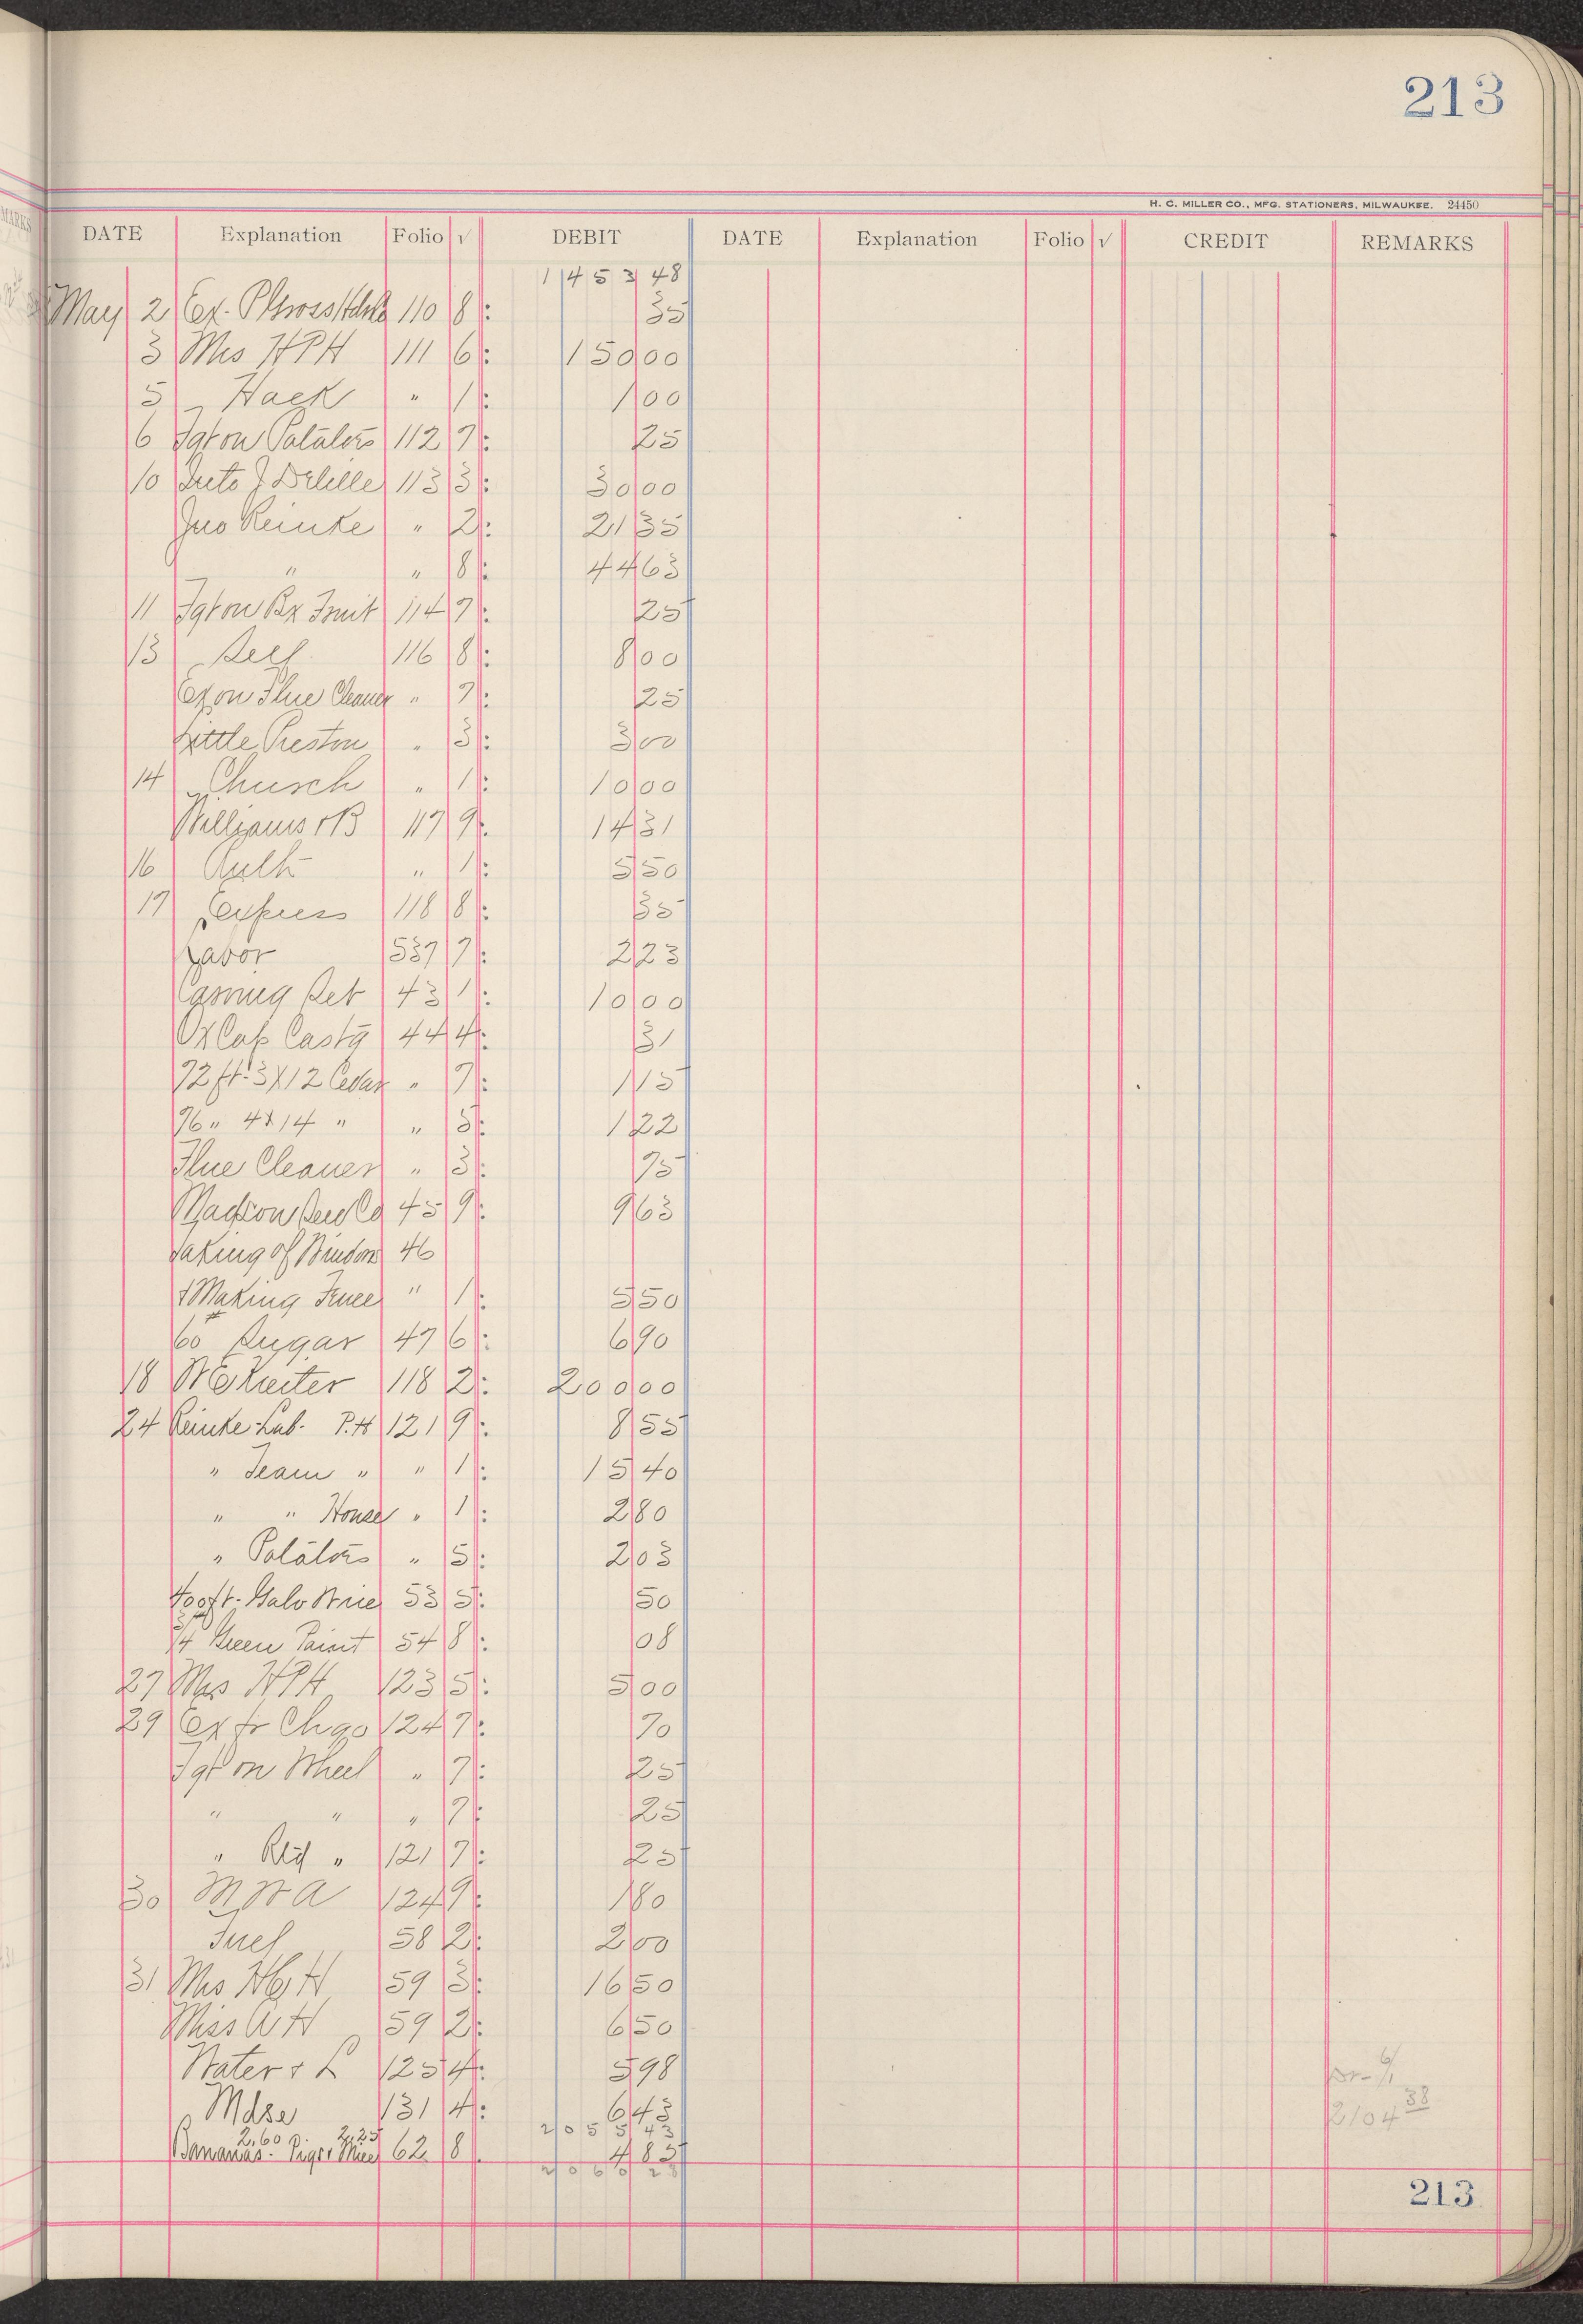 213
H. C. MILLER CO., MFG. STATIONERS, MILWAUKEE. 24450
DATE Explanation Folio √ DEBIT DATE Explanation Folio √ CREDIT REMARKS
1453 48
May 2 Ex. 110 8 35
3 Mrs HPH 111 6 150 00
5 Hack " 1 1 00
6 Fgt on Potatoes 112 7 25
10 Auto 113 3 30 00
Jno Reinke " 2 21 35
" " 8 44 63
11 Fgt on Bx Fruit 114 7 25
13 Self 116 8 8 00
Ex on Flue Cleaner " 7 25
Little Preston " 3 3 00
14 Chusch " 1 10 00
Williams & B 117 9 14 31
16 Ault " 1 5 50
17 Express 118 8 35
Labor 537 7 2 23
Canning Set 43 1 10 00
Cap Castg 44 4 31
72 ft. 3x12 Cedar " 7 1 15
76 " 4x14 " " 5 1 22
Flue Cleaner " 3 75
45 9 9 63
Taking of 46
& Making Fence " 1 5 50
60 Sugar 47 6 6 90
18 118 2 200 00
24 Reinke Lab. P.H 121 9 8 55
" Team " " 1 15 40
" " House " 1 2 80
" Potatoes " 5 2 03
400 ft. Galv Wire 53 5 50
3/4 Green Paint 54 8 08
27 Mrs HPH 123 5 5 00
29 Ex fr Chgo 124 7 70
Fgt on Wheel " 7 25
" " " 7 25
" " 121 7 25
30 M W A 124 9 1 80
Fuel 58 2 2 00
31 Mrs H 59 3 16 50
Miss A H 59 2 6 50
Water & L 125 4 5 98
Mdse 131 4 6 43
2055 43
2.60 2.25
Bananas. 62 8 4 85
2060 28
2104 38
213